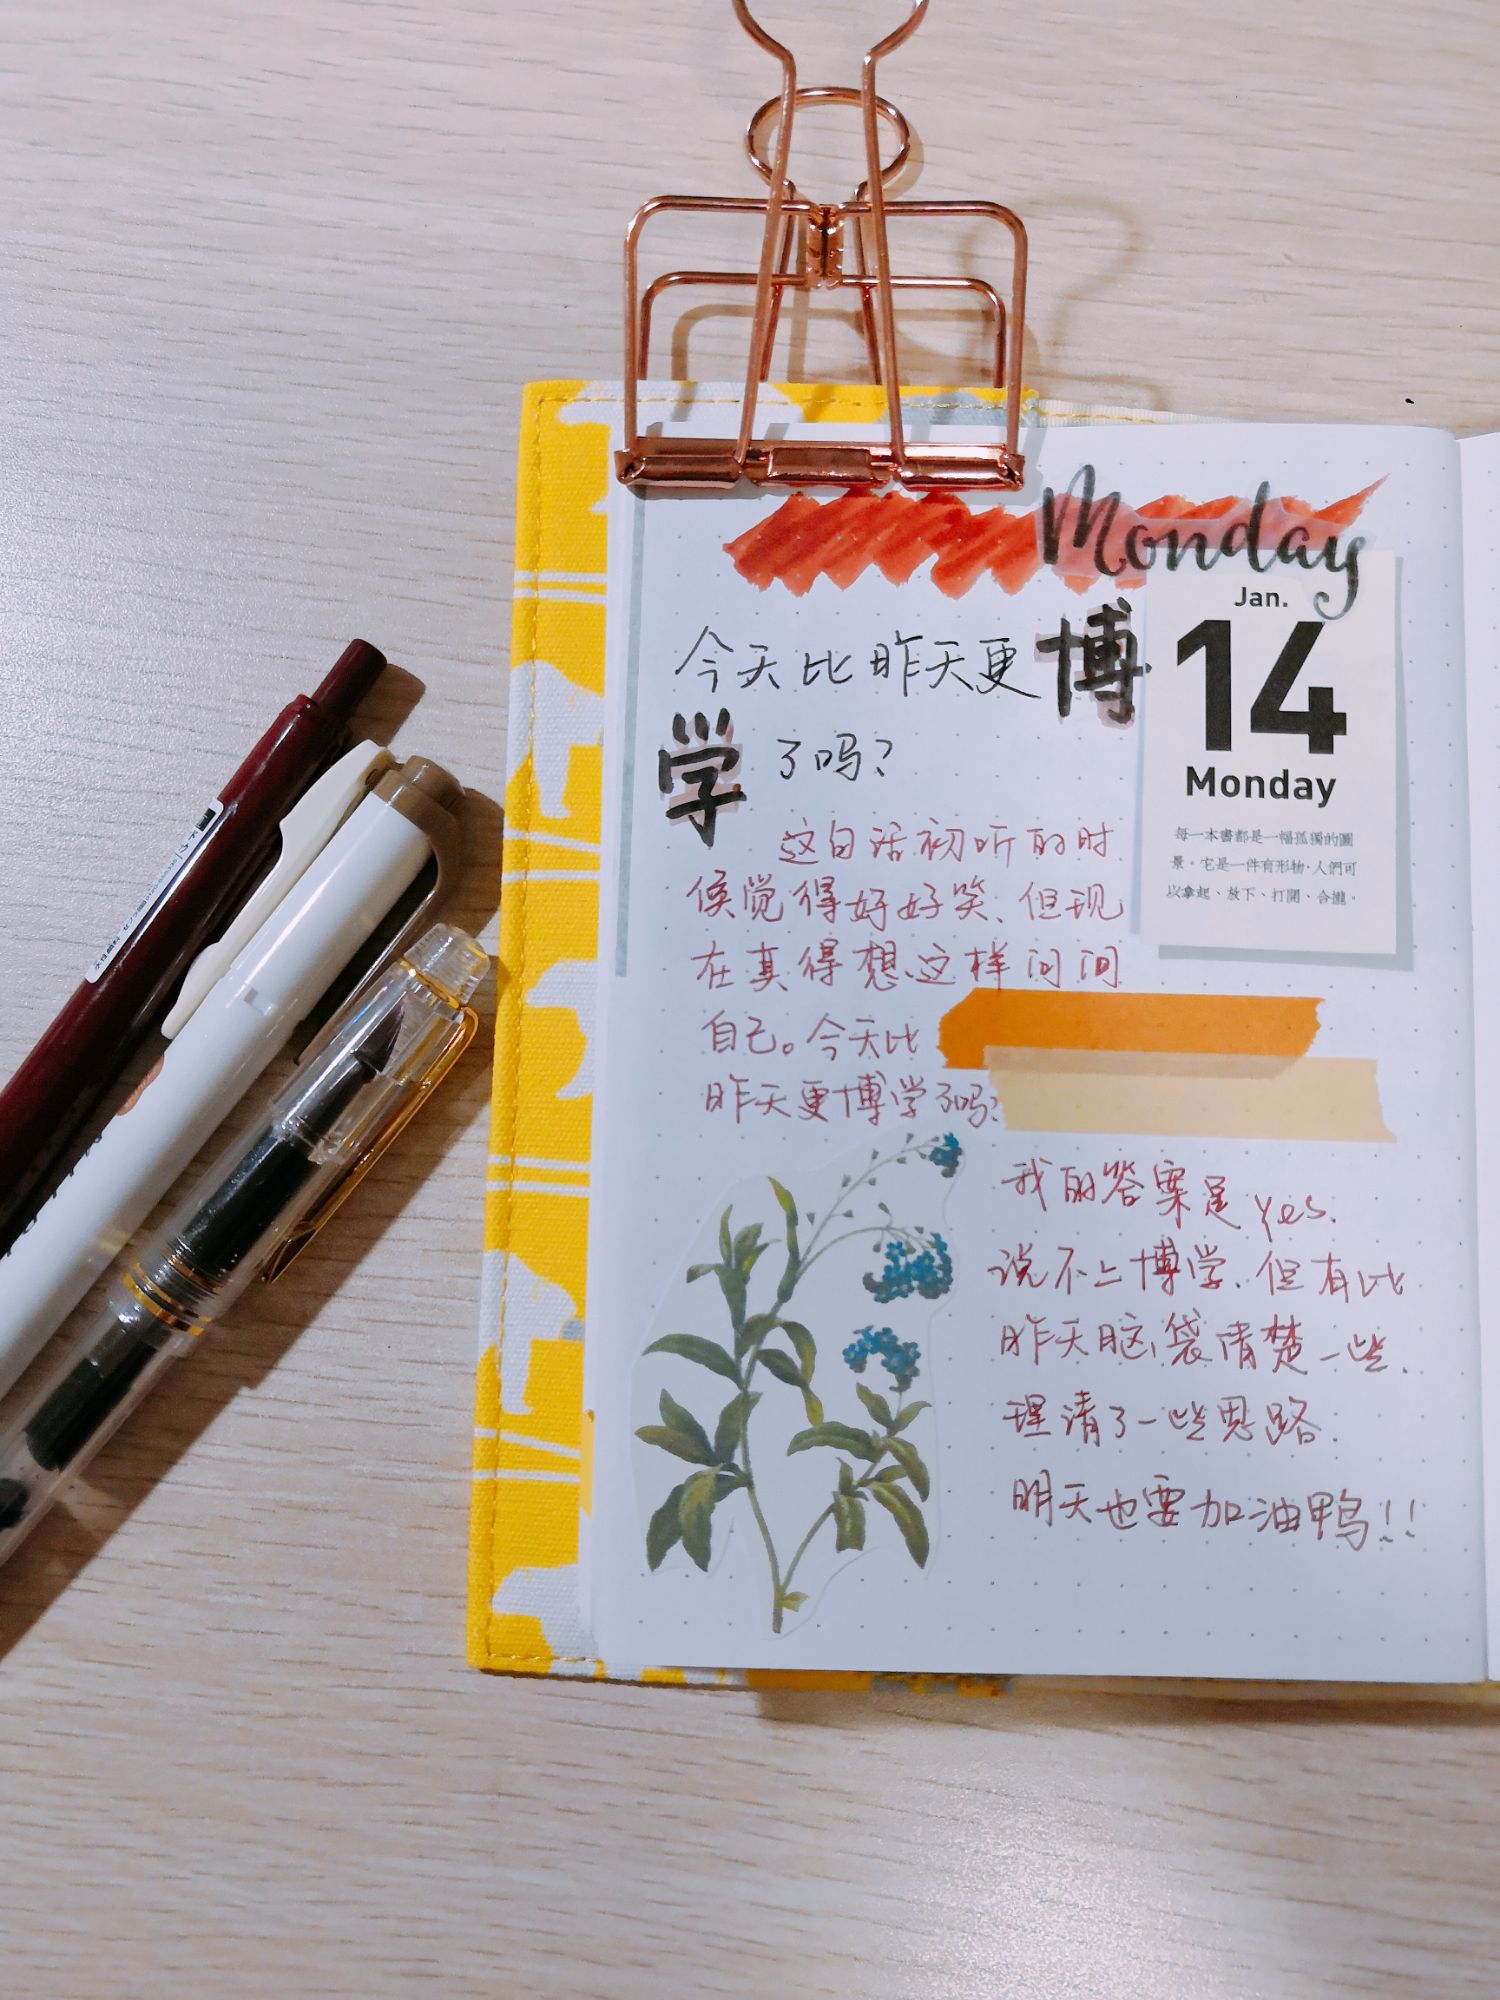 Monday
Jan.
14
Monday
每一本書都是一幅孤獨的圖
景。它是一件有形物,人們可
以拿起、放下、打開、合攏。
今天比昨天更博
学了吗?
这句话初听的时
候觉得好好笑、但现
在真得想这样问问
自己。今天比
昨天更博学了吗?
我的答案是yes.
说不上博学、但有比
昨天脑袋清楚一些.
理清了一些思路.
明天也要加油鸭!!